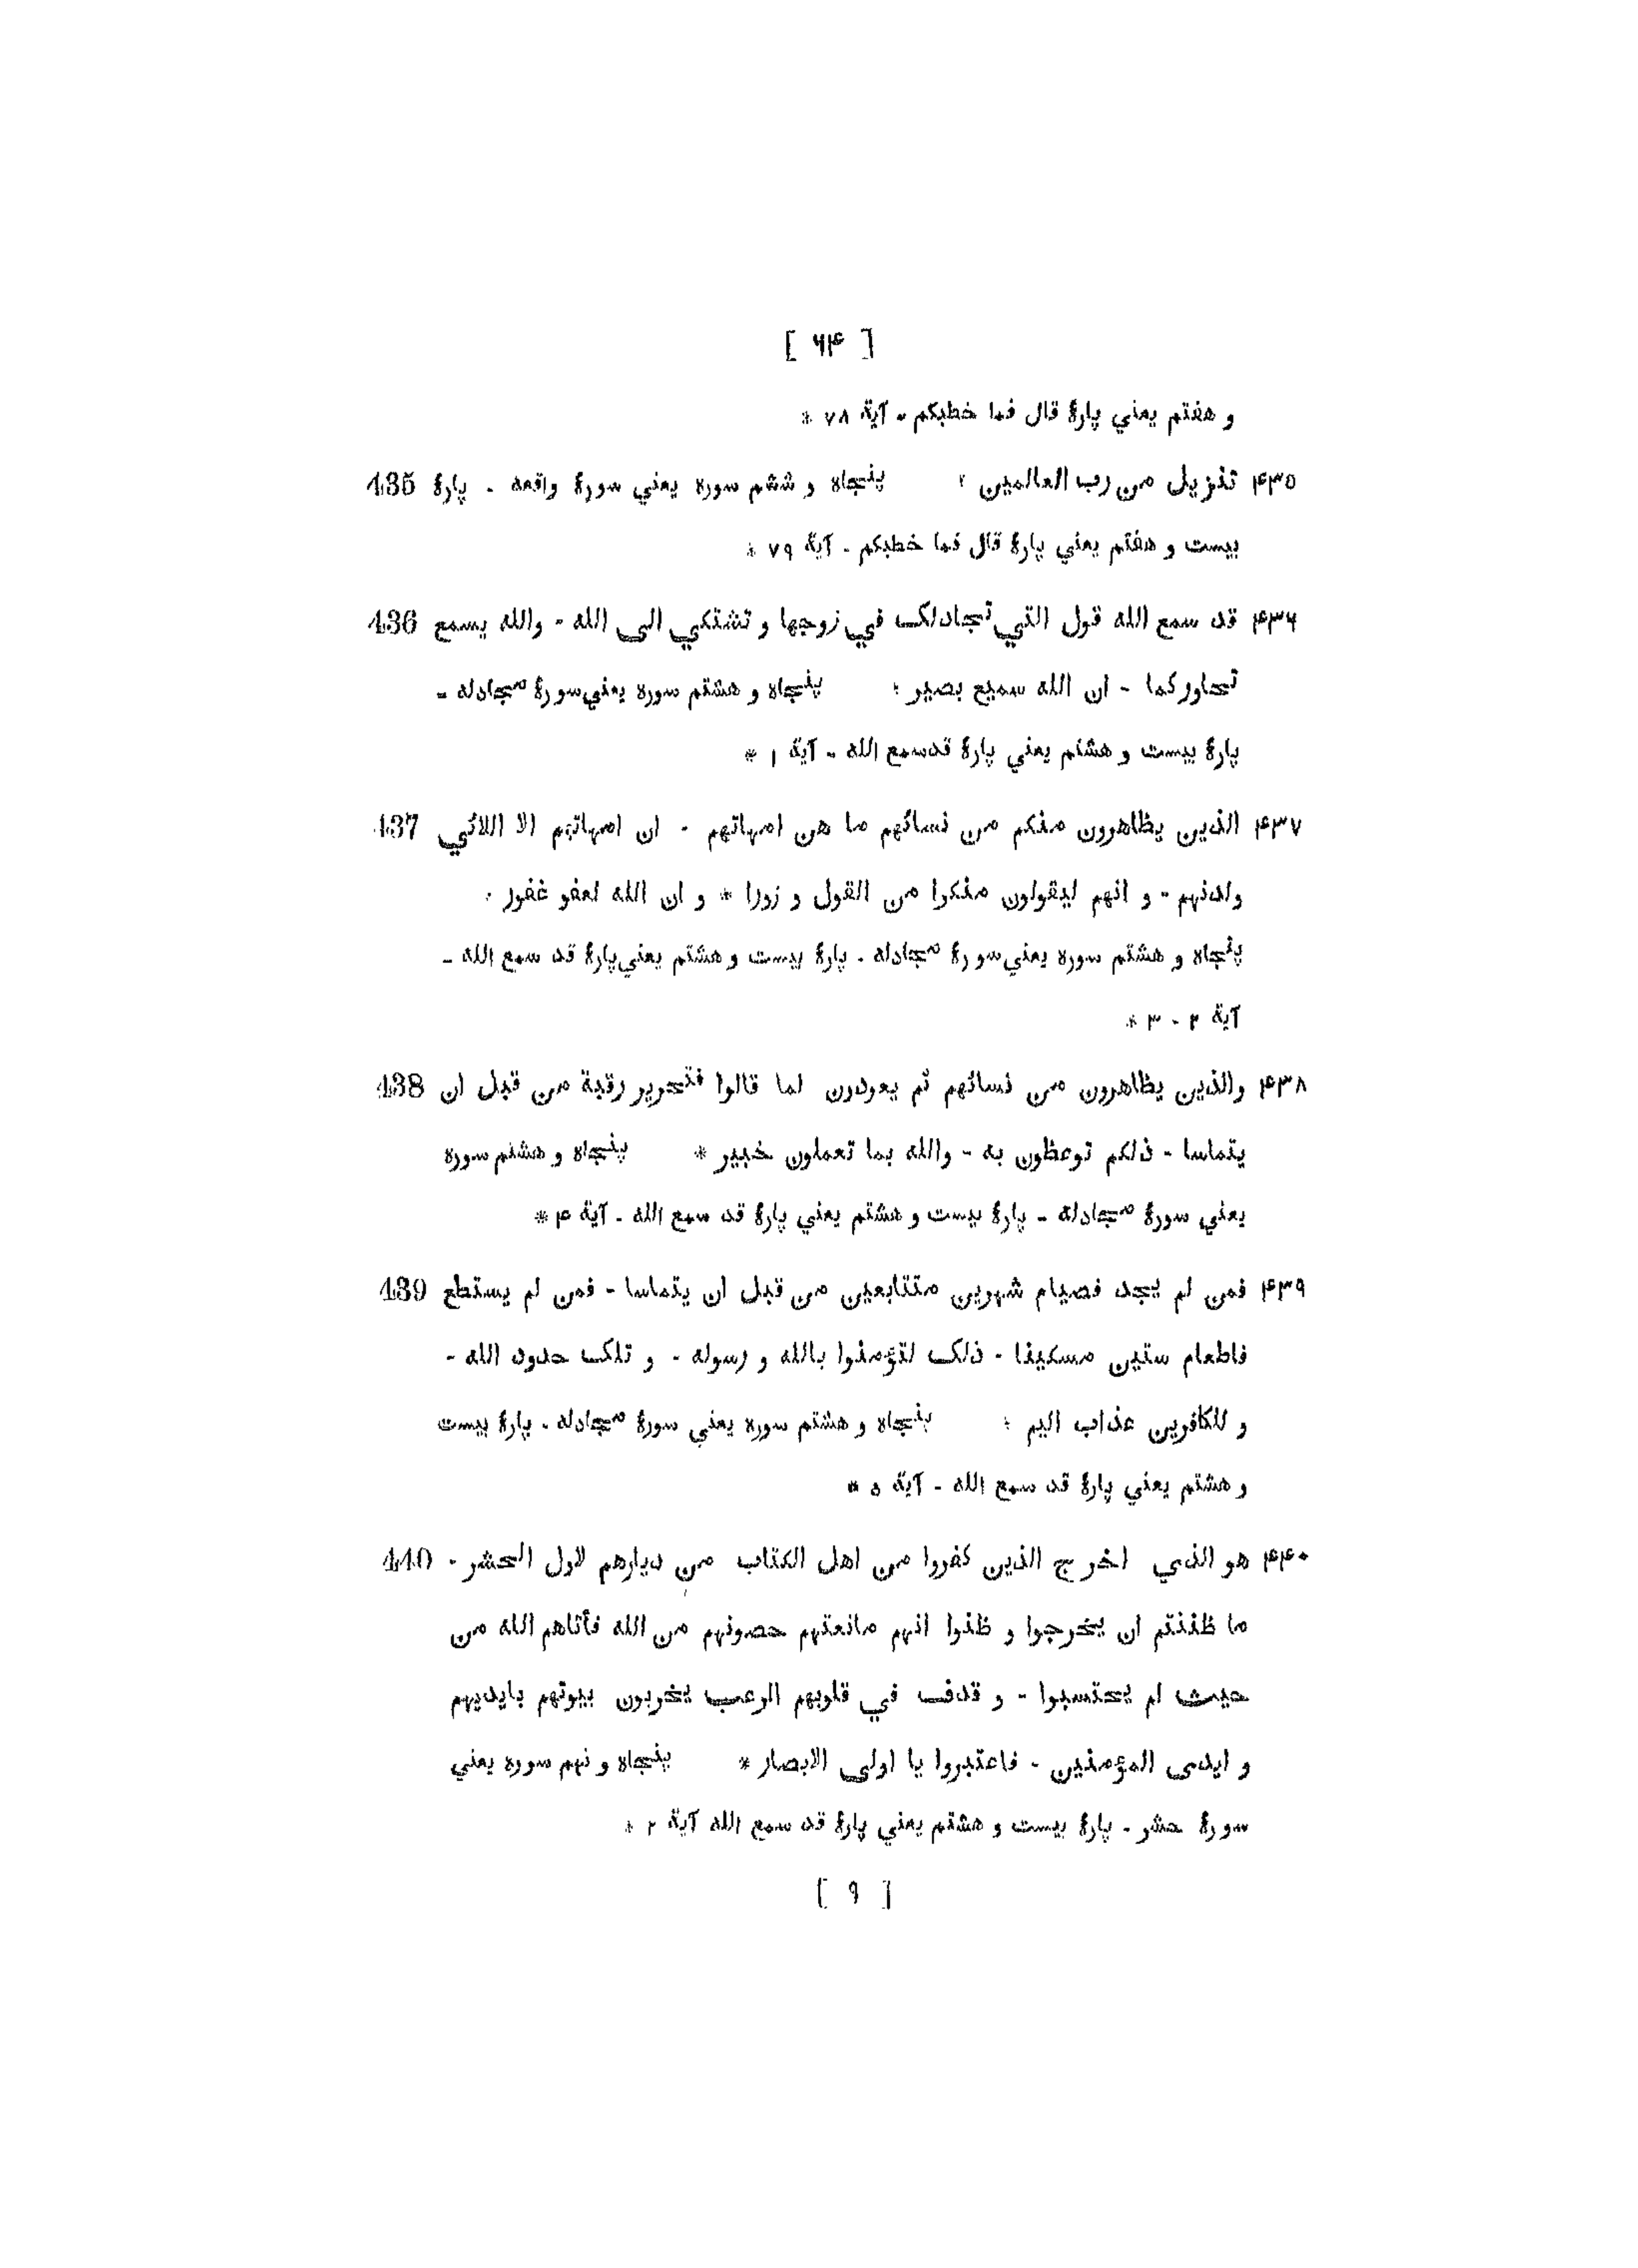 [ ۶۴ ]
و هفتم يعني پارۀ قال فما خطبكم - آية ۷۸ *
۴۳۵ تنزيل من رب العالمين * پنجاه و ششم سوره يعني سورۀ واقعه - پارۀ 435
بيست و هفتم يعني پارۀ قال فما خطبكم - آية ۷۹ *
۴۳۶ قد سمع الله قول التي تجادلك في زوجها و تشتكي الى الله - والله يسمع 436
تحاوركما - ان الله سميع بصير * پنجاه و هشتم سوره يعني سورۀ مجادله -
پارۀ بيست و هشتم يعني پارۀ قد سمع الله - آية ۱ *
۴۳۷ الذين يظاهرون منكم من نسائهم ما هن امهاتهم - ان امهاتهم الا اللائي 437
ولدنهم - و انهم ليقولون منكرا من القول و زورا * و ان الله لعفو غفور *
پنجاه و هشتم سوره يعني سورۀ مجادله - پارۀ بيست و هشتم يعني پارۀ قد سمع الله -
آية ۲ - ۳ *
۴۳۸ والذين يظاهرون من نسائهم ثم يعودون لما قالوا فتحرير رقبة من قبل ان 438
يتماسا - ذلكم توعظون به - والله بما تعملون خبير * پنجاه و هشتم سوره
يعني سورۀ مجادله - پارۀ بيست و هشتم يعني پارۀ قد سمع الله - آية ۴ *
۴۳۹ فمن لم يجد فصيام شهرين متتابعين من قبل ان يتماسا - فمن لم يستطع 439
فاطعام ستين مسكينا - ذلك لتؤمنوا بالله و رسوله - و تلك حدود الله -
و للكافرين عذاب اليم * پنجاه و هشتم سوره يعني سورۀ مجادله - پارۀ بيست
و هشتم يعني پارۀ قد سمع الله - آية ۵ *
۴۴۰ هو الذي اخرج الذين كفروا من اهل الكتاب من ديارهم لاول الحشر - 440
ما ظننتم ان يخرجوا و ظنوا انهم مانعتهم حصونهم من الله فأتاهم الله من
حيث لم يحتسبوا - و قدف في قلوبهم الرعب يخربون بيوتهم بايديهم
و ايدى المؤمنين - فاعتبروا يا اولى الابصار * پنجاه و نهم سوره يعني
سورۀ حشر - پارۀ بيست و هشتم يعني پارۀ قد سمع الله آية ۲ *
[ ۹ ]